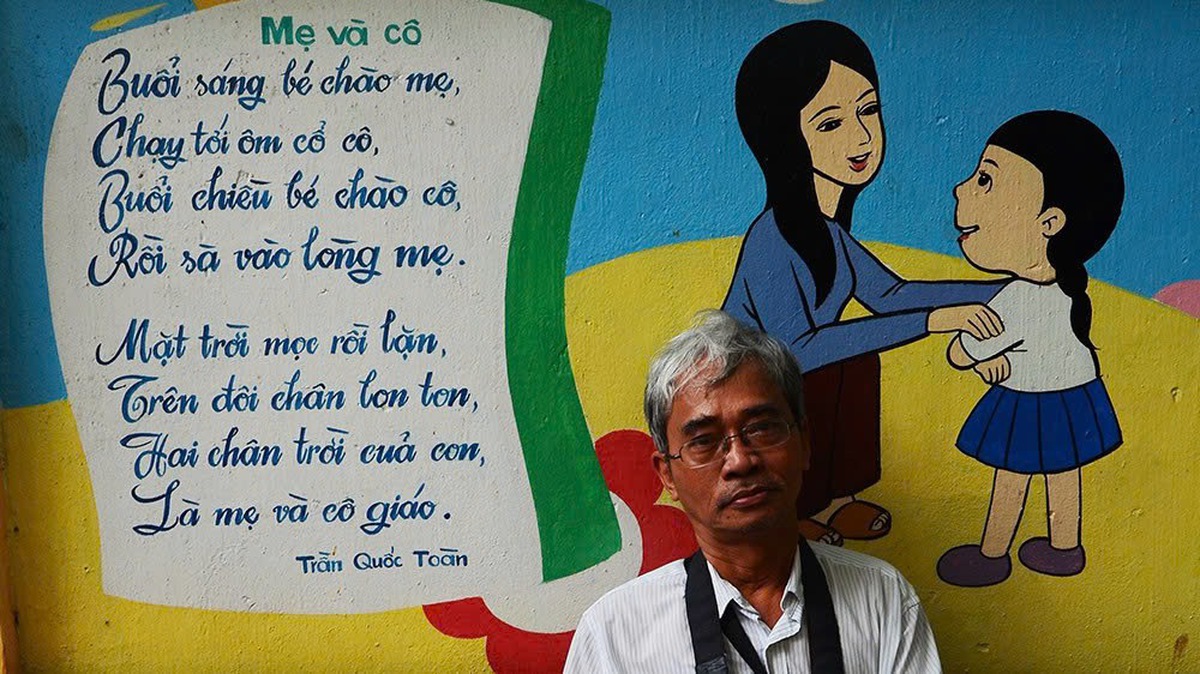 Mẹ và cô
Buổi sáng bé chào mẹ,
Chạy tới ôm cổ cô,
Buổi chiều bé chào cô,
Rồi sà vào lòng mẹ.
Mặt trời mọc rồi lặn,
Trên đôi chân lon ton,
Hai chân trời của con,
Là mẹ và cô giáo.
Trần Quốc Toàn